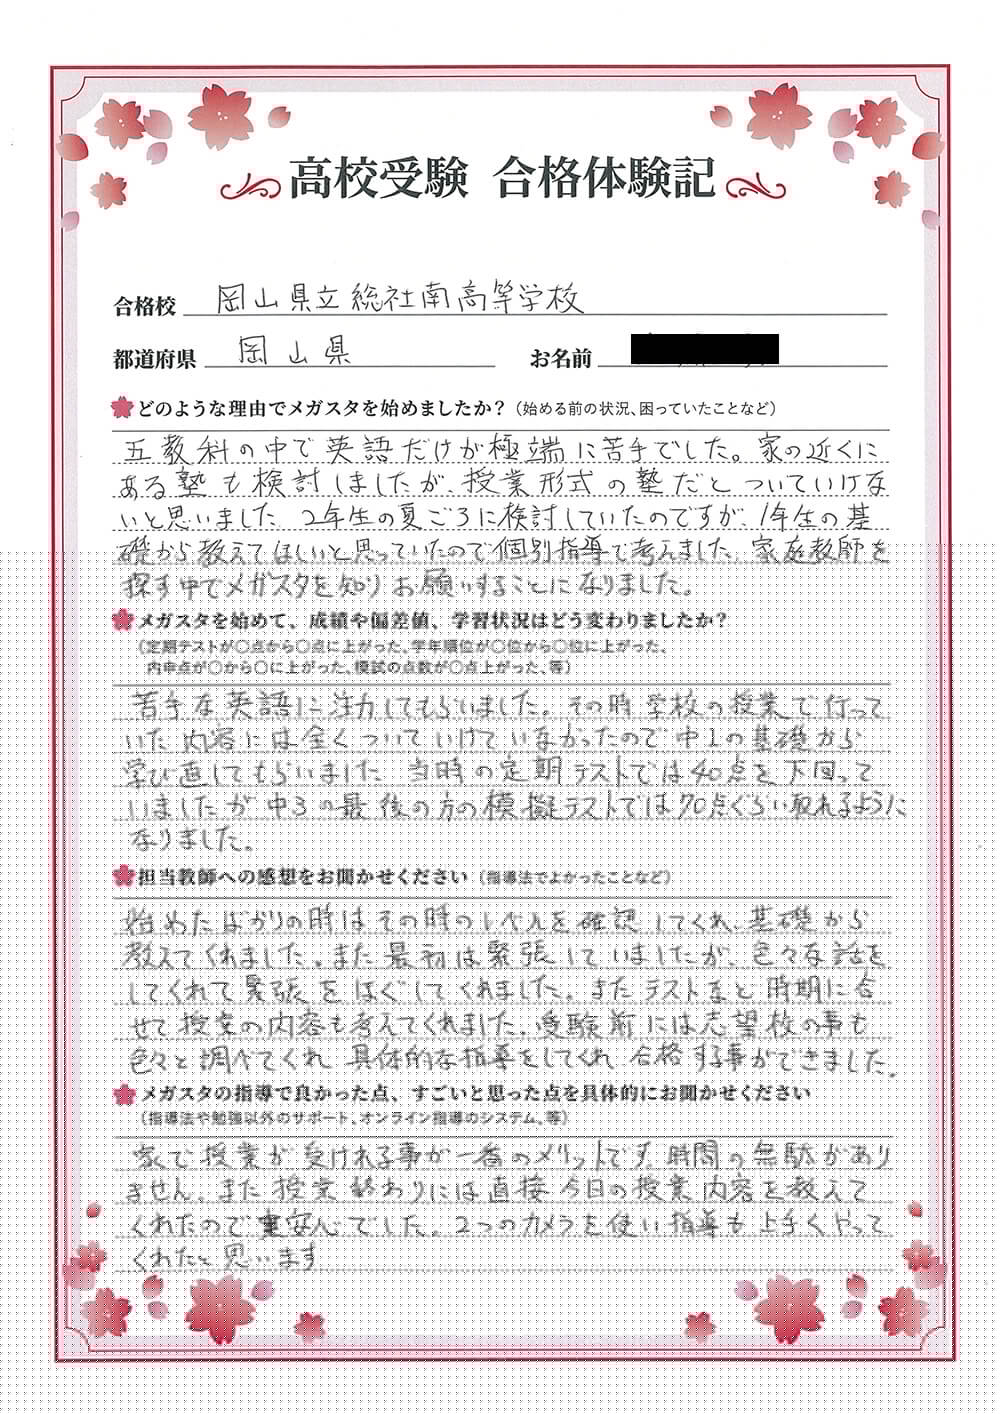 高校受験 合格体験記
合格校 岡山県立総社南高等学校
都道府県 岡山県 お名前
どのような理由でメガスタを始めましたか？（始める前の状況、困っていたことなど）
五教科の中で英語だけが極端に苦手でした。家の近くに
ある塾も検討しましたが、授業形式の塾だとついていけな
いと思いました 2年生の夏ごろに検討していたのですが、1年生の基
礎から教えてほしいと思っていたので個別指導で考えました、家庭教師を
探す中でメガスタを知りお願いすることになりました。
メガスタを始めて、成績や偏差値、学習状況はどう変わりましたか？
（定期テストが〇点から〇点に上がった、学年順位が〇位から〇位に上がった、
内申点が〇から〇に上がった、模試の点数が〇点上がった、等）
苦手な英語に注力してもらいました。その時学校の授業で行って
いた内容には全くついていけていなかったので中1の基礎から
学び直してもらいました 当時の定期テストでは40点を下回って
いましたが中3の最後の方の模擬テストでは70点ぐらい取れるように
なりました。
担当教師への感想をお聞かせください（指導法でよかったことなど）
始めたばかりの時はその時のレベルを確認してくれ、基礎から
教えてくれました。また最初は緊張していましたが、色々な話を
してくれて緊張をほぐしてくれました。またテストまと時期に合
せて授業の内容も考えてくれました。受験前には志望校の事も
色々と調べてくれ 具体的な指導をしてくれ 合格する事ができました。
メガスタの指導で良かった点、すごいと思った点を具体的にお聞かせください
（指導法や勉強以外のサポート、オンライン指導のシステム、等）
家で授業が受けれる事が一番のメリットです。時間の無駄があり
ません。また授業終わりには直接今日の授業内容を教えて
くれたので安心でした。2つのカメラを使い指導も上手くやって
くれたと思います